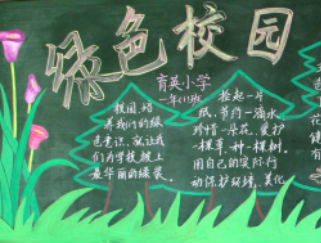 绿色校园
育英小学
一年(1)班
校园,培
养我们的绿
色意识,就让我
们为学校披上
最华丽的绿装。
捡起一片
纸,节约一滴水,
珍惜一朵花,爱护
一棵草,种一棵树。
用自己的实际行
动保护环境、美化